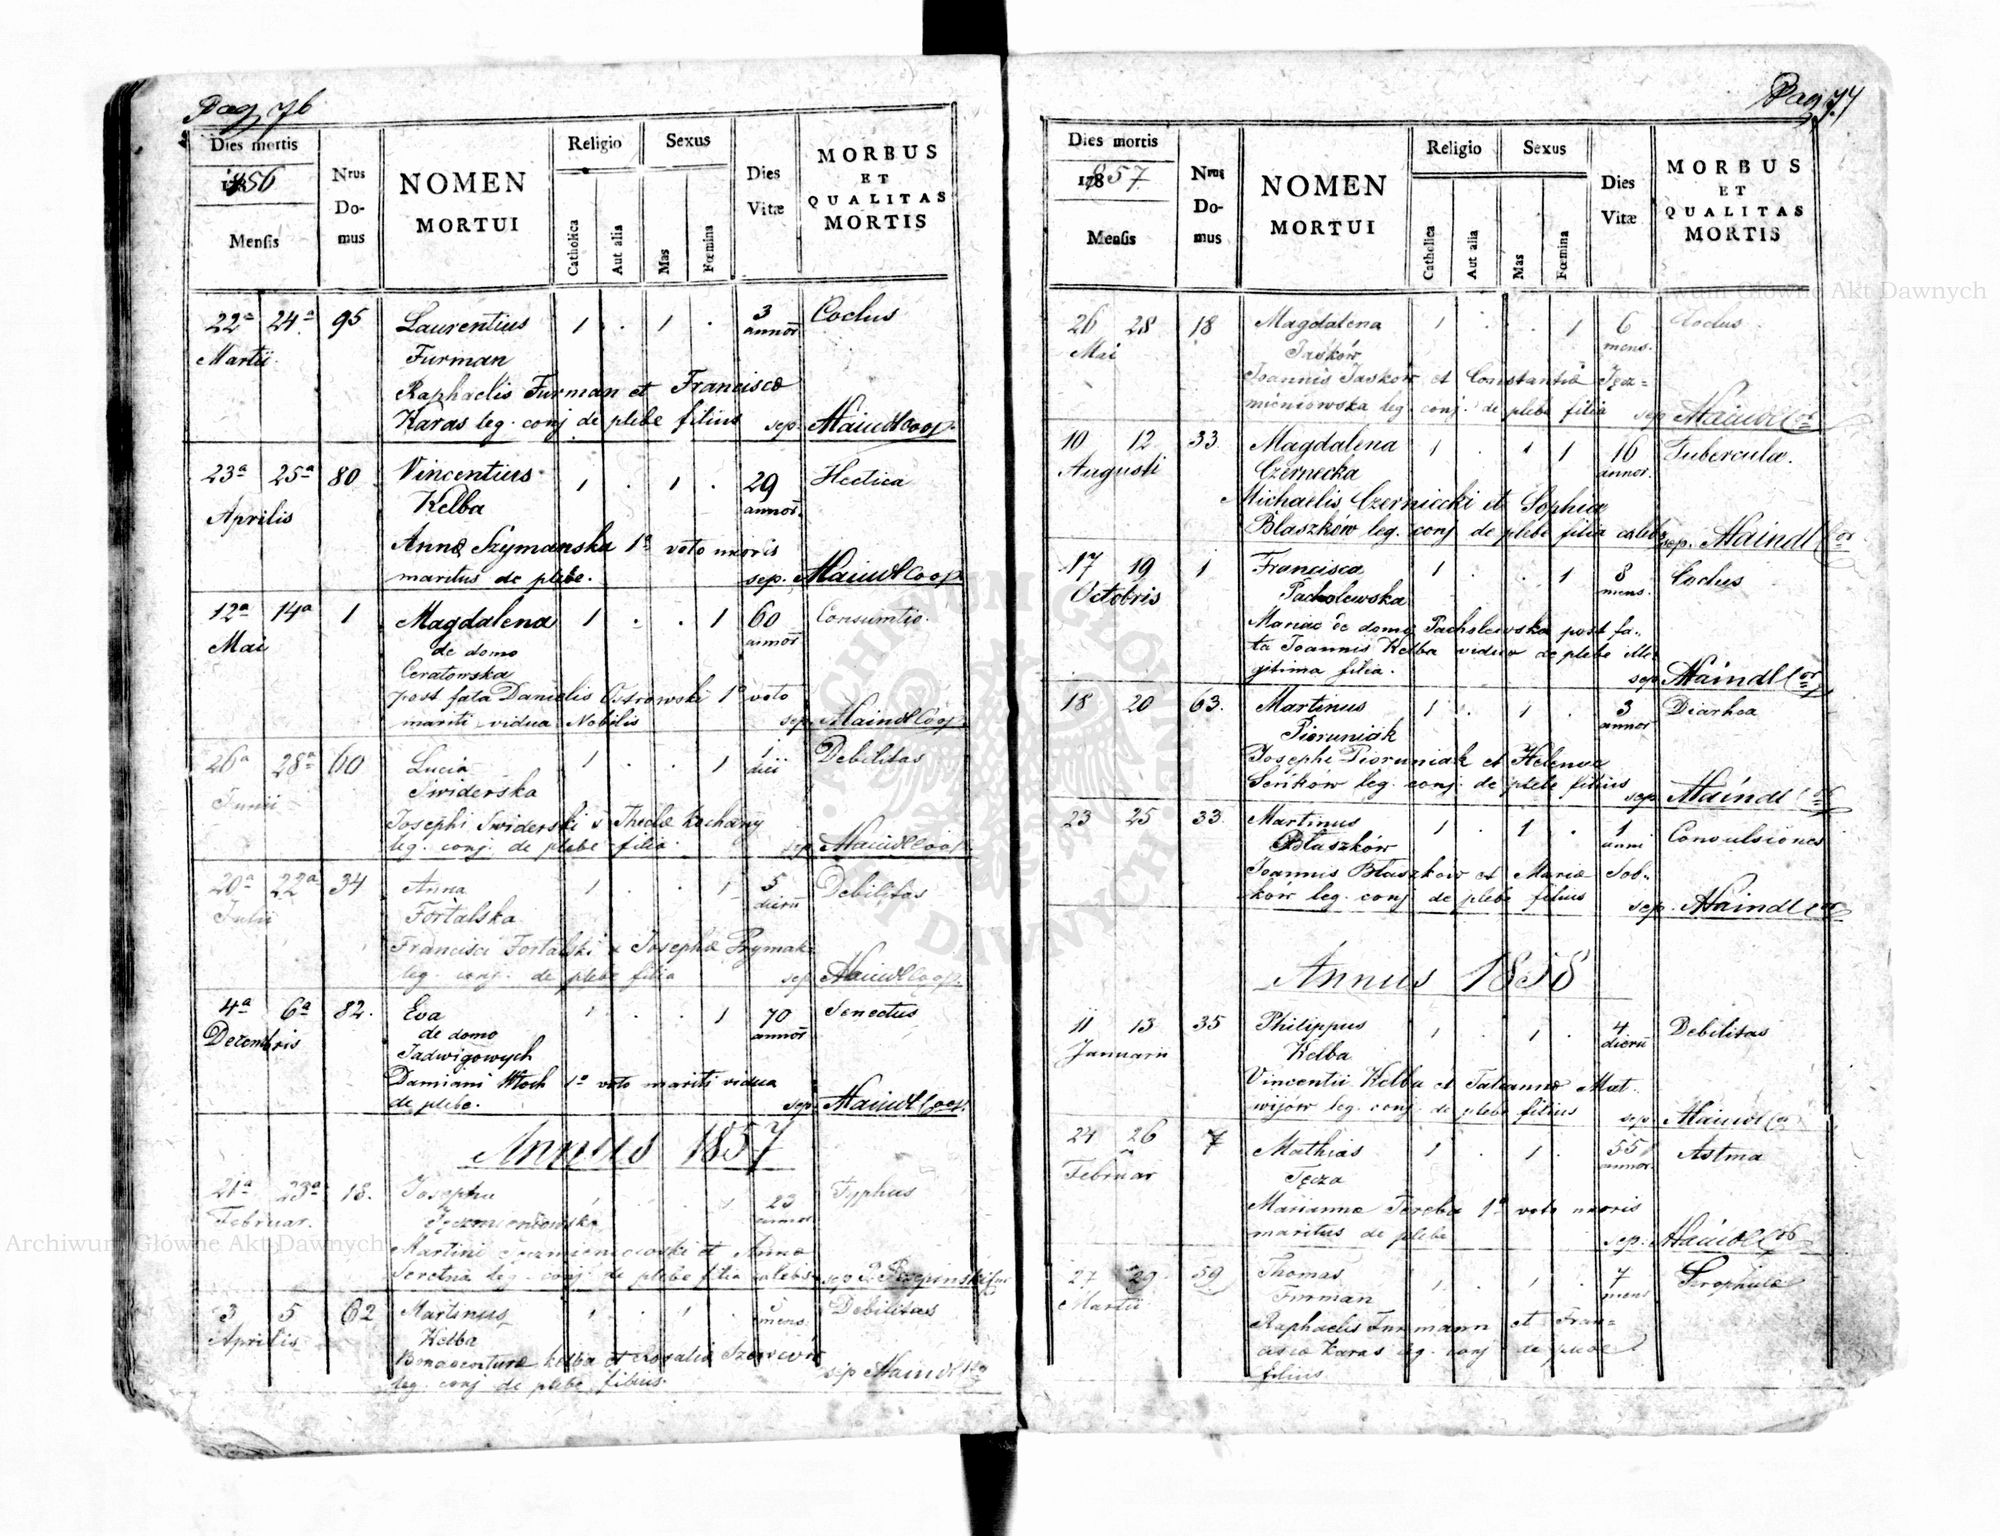 Pag 76
Dies mortis
1856
Mensis
Nrus Domus
NOMEN MORTUI
Religio
Catholica
Aut alia
Sexus
Mas
Fœmina
Dies Vitæ
MORBUS ET QUALITAS MORTIS
22a 24a 95 Laurentius 1 . 1 . 3 Coclus
Martii Furman annor
Raphaelis Furman et Franciscæ
Karas leg. conj de plebe filius sep. Maindl Coop.
23a 25a 80 Vincentius 1 . 1 . 29 Hectica
Aprilis Kelba annor.
Annæ Szymanska 1o voto uxoris
maritus de plebe. sep. Maindl Coop.
12a 14a 1 Magdalena 1 . . 1 60 Consumtio.
Mai de domo annor
Ceratowska
post fata Danielis Ostrowski 1o voto
mariti vidua Nobilis sep. Maindl Coop.
26a 28a 60 Lucia 1 . . 1 1 Debilitas
Junii Swiderska diei
Josephi Swiderski & Theclæ Kochany
leg. conj. de plebe filia. sep. Maindl Coop.
20a 22a 34 Anna 1 . . 1 5 Debilitas
Julii Fortalska dierū
Francisci Fortalski & Josephæ Szymak
leg. conj. de plebe filia sep. Maindl Coop.
4a 6a 82. Eva 1 . . 1 70 Senectus
Decembris de domo annor
Jadwigowych
Damiani Włoch 1o voto mariti vidua
de plebe. sep. Maindl Coop.
Annus 1857
21a 23a 18. Josepha 1 . . 1 23 Typhus
Februar. Jęczmieniowska annor
Martini Jęczmieniowski et Annæ
leg. conj. de plebe filia cælebs sep P.
3 5 62 Martinus 1 . 1 . mens. Debilitas
Aprilis Kelba
Bonaventuræ Kelba et Rosaliæ
leg. conj de plebe filius. sep Maindl
Pag 77
Dies mortis
1857
Mensis
Nrus Domus
NOMEN MORTUI
Religio
Catholica
Aut alia
Sexus
Mas
Fœmina
Dies Vitæ
MORBUS ET QUALITAS MORTIS
26 28 18 Magdalena 1 . . 1 6 Coclus
Mai Jasków mens.
Joannis Jasków et Constantiæ Jęcz=
mieniowska leg. conj. de plebe filia sep Maindl Cor
10 12 33. Magdalena 1 . . 1 16 Tubercula.
Augusti Czernecka annor.
Michaelis Czerniecki et Sophiæ
Błaszków leg. conj de plebe filia cælebs sep. Maindl Cor
17 19 1 Francisca 1 . . 1 8 Coclus
Octobris Pacholewska mens.
Mariae de domo Pacholewska post fa..
ta Joannis Kelba vidua de plebe ille
gitima filia. sep Maindl Cor
18 20 63. Martinus 1 . 1 . 3 Diarhea
Pioruniak annor
Josephi Pioruniak et Helenæ
Senków leg. conj. de plebe filius sep Maindl Cor
23 25 33. Martinus 1 . 1 . 1 Convulsiones
Błaszków anni
Joannis Błaszków et Mariæ Sob..
ków leg. conj de plebe filius sep. Maindl Cor
Annus 1858
11 13 35 Philippus 1 . 1 . 4 Debilitas
Januarii Kelba dierū
Vincentii Kelba et Tatiannæ Mat.
wijów leg. conj. de plebe filius sep. Maindl Cor
24 26 7 Mathias 1 . 1 . 55 Astma
Februar Tęcza annor.
Mariannæ Tereba 1o voto uxoris
maritus de plebe sep. Maindl Cor
27 29 59 Thomas 1 . 1 . 7 Scrophulæ
Martii Furman mens
Raphaelis Furmann et Fran=
ciscæ Karas leg. conj de plebe
filius
Archiwum Główne Akt Dawnych
Archiwum Główne Akt Dawnych
ARCHIWUM GŁÓWNE AKT DAWNYCH